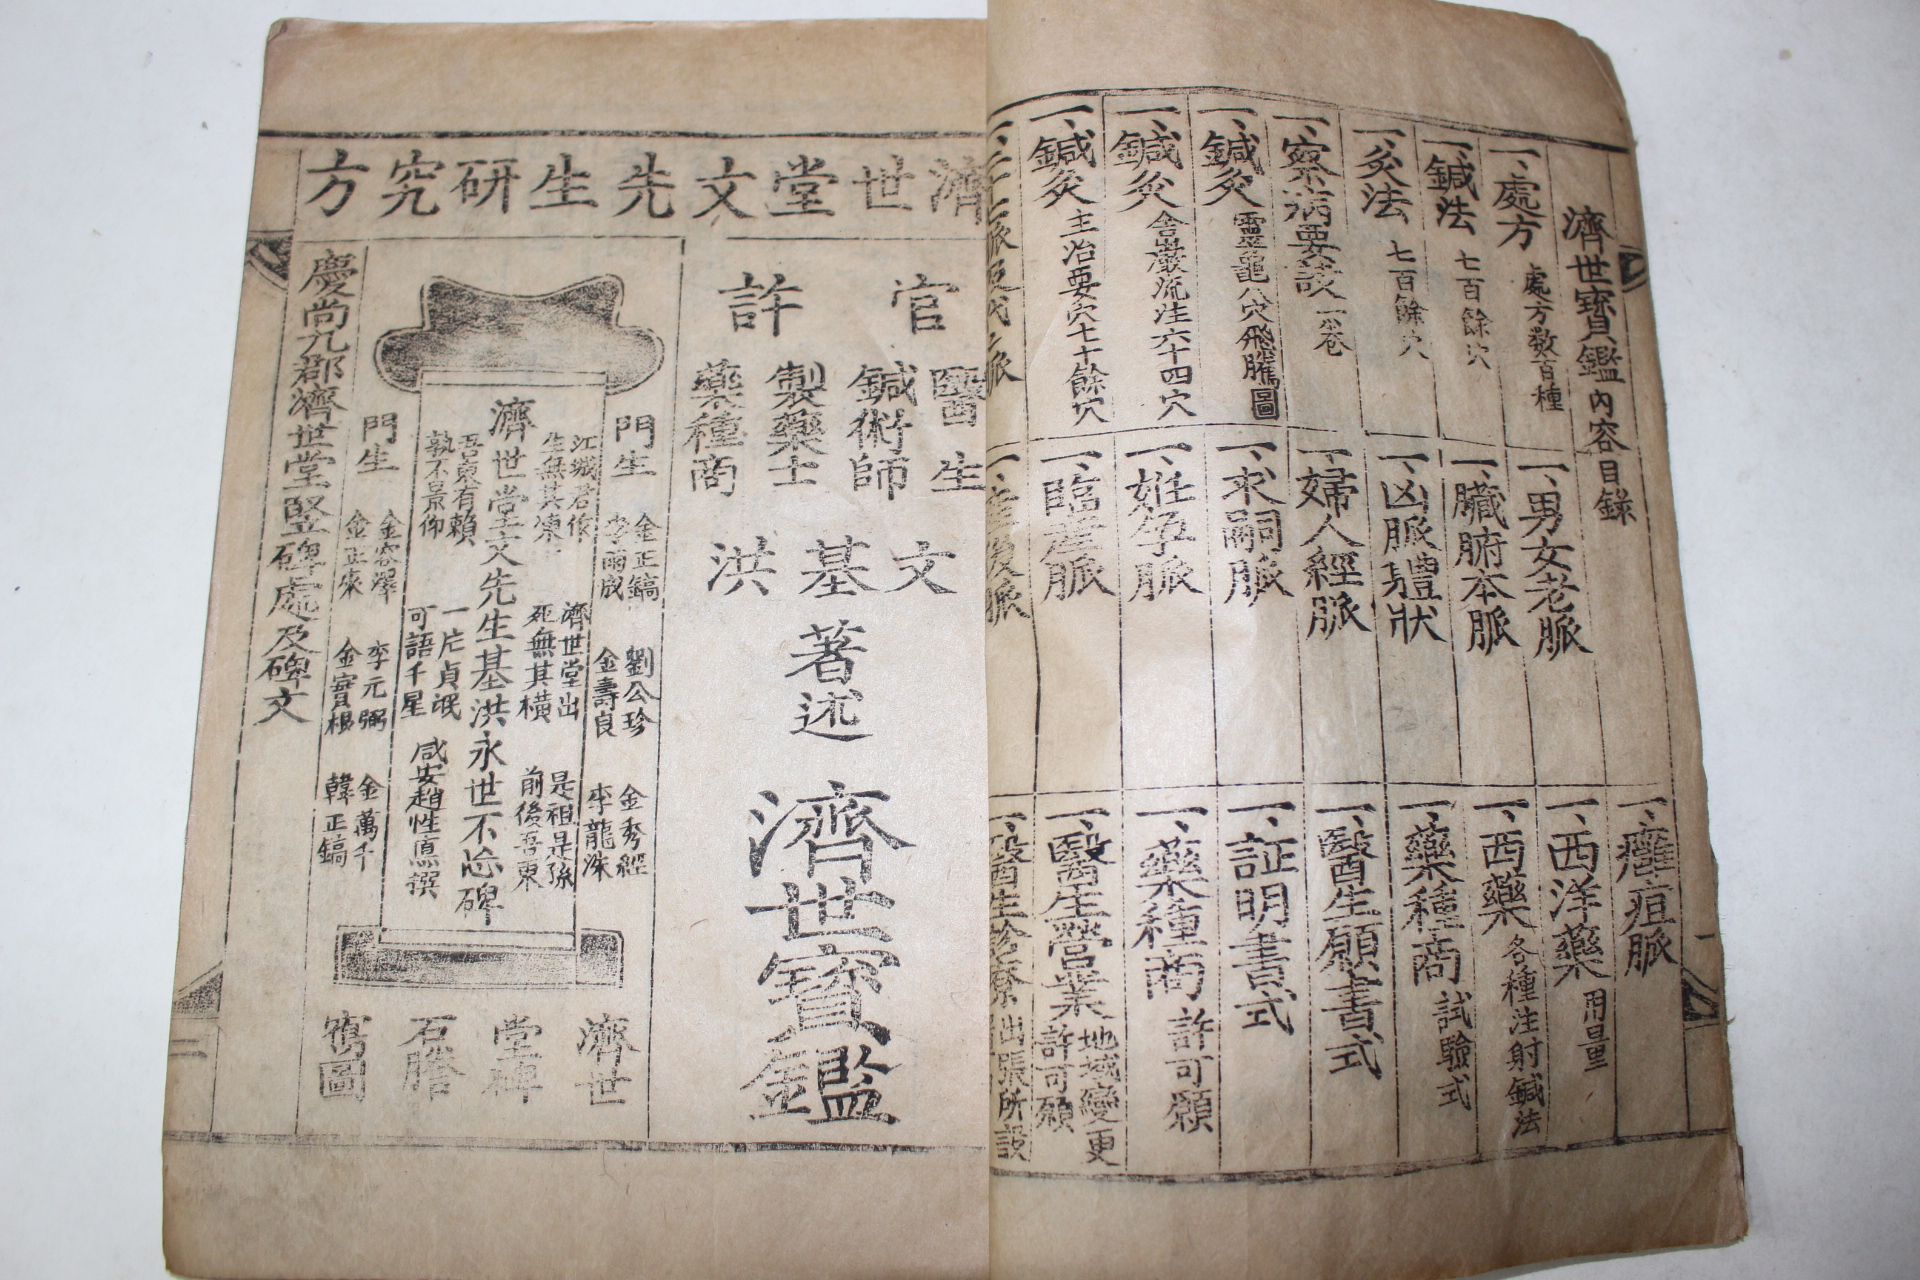 濟世寶鑑內容目錄
一、處方 處方數百種
一、鍼法 七百餘穴
一、灸法 七百餘穴
一、察病要訣 一卷
一、鍼灸 靈龜八穴飛騰圖
一、鍼灸 舍巖流注六十四穴
一、鍼灸 主治要穴七十餘穴
一、男女老脈
一、臟腑本脈
一、凶脈軆狀
一、婦人經脈
一、求嗣脈
一、姙孕脈
一、臨產脈
一、產後脈
一、癰疽脈
一、西洋藥 用量
一、西藥 各種注射鍼法
一、藥種商 試驗式
一、醫生願書式
一、証明書式
一、藥種商 許可願
一、醫生營業 地域變更許可願
一、醫生診療 出張所設
濟世堂文先生研究方
官許
醫生
鍼術師
製藥士
藥種商
文基洪
著述
濟世寶鑑
門生 金正鎬 劉公珍 金秀經
李雨成 金壽良 李龍洙
江城君後 濟世堂出 是祖是孫
生無其凍 死無其橫 前後吾東
濟世堂文先生基洪永世不忘碑
吾東有賴 一片貞珉
孰不景仰 可語千星 咸安趙性惪撰
門生 金容澤 李元弼 金萬千
金正來 金寶根 韓正鎬
濟世堂碑石謄寫圖
慶尚九郡濟世堂竪碑處及碑文
二